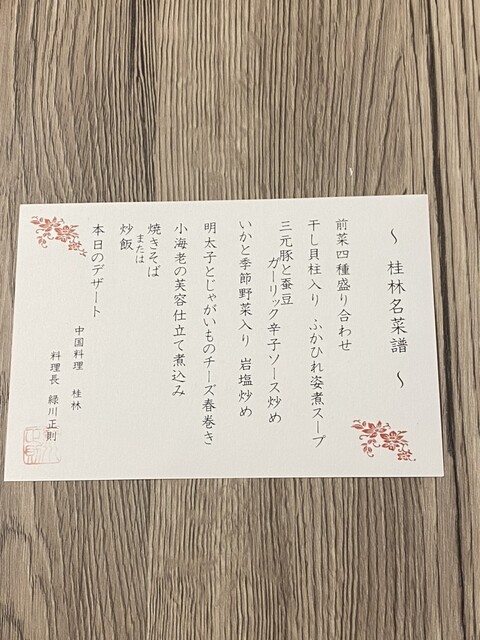 ～ 桂林名菜譜 ～
前菜四種盛り合わせ
干し貝柱入り ふかひれ姿煮スープ
三元豚と蚕豆
ガーリック辛子ソース炒め
いかと季節野菜入り 岩塩炒め
明太子とじゃがいものチーズ春巻き
小海老の芙容仕立て煮込み
焼きそば
または
炒飯
本日のデザート
中国料理 桂林
料理長 緑川正則